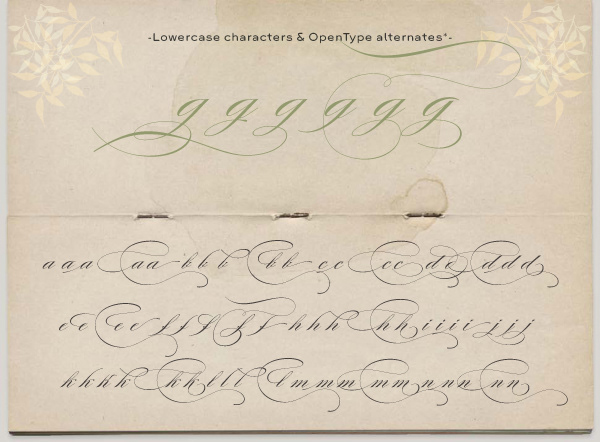 -Lowercase characters & OpenType alternates*-
g g g g g g
a a a a a b b b b b c c c c d d d d d
e e e e f f f f f h h h h h i i i i j j j
k k k k k k l l l l m m m m m n n n n n